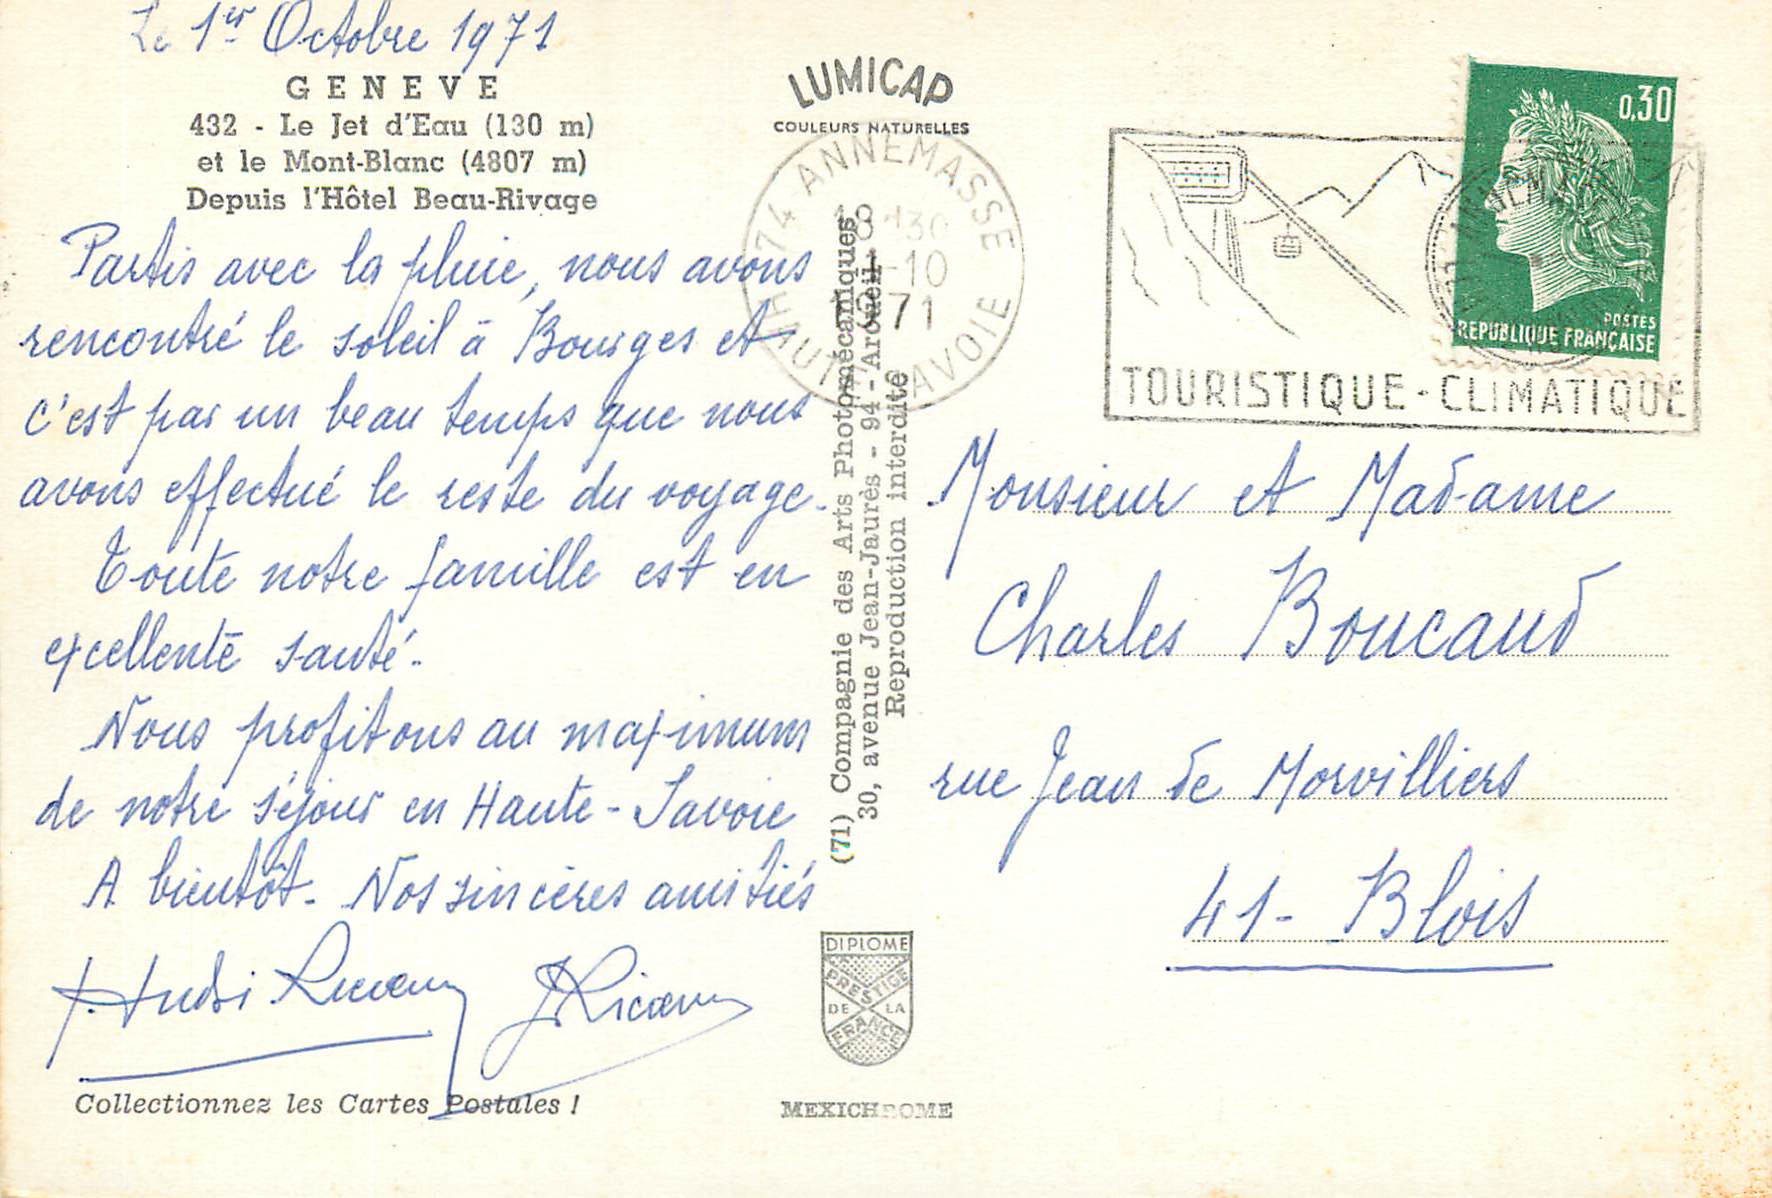 Le 1er Octobre 1971
GENEVE
432 - Le Jet d'Eau (130 m)
et le Mont-Blanc (4807 m)
Depuis l'Hôtel Beau-Rivage
Partis avec la pluie, nous avons
rencontré le soleil à Bourges et
c'est par un beau temps que nous
avons effectué le reste du voyage.
Toute notre famille est en
excellente santé.
Nous profitons au maximum
de notre séjour en Haute-Savoie
A bientôt. Nos sincères amitiés
Collectionnez les Cartes Postales !
LUMICAP
COULEURS NATURELLES
74 ANNEMASSE
18 H 30
1-10
1971
HAUTE SAVOIE
(71) Compagnie des Arts Photomécaniques
30, avenue Jean-Jaurès - 94 - Arcueil
Reproduction interdite
DIPLOME
PRESTIGE
DE LA
FRANCE
MEXICHROME
0,30
POSTES
REPUBLIQUE FRANÇAISE
TOURISTIQUE - CLIMATIQUE
Monsieur et Madame
Charles Boucaud
rue Jean de Morvilliers
41 - Blois